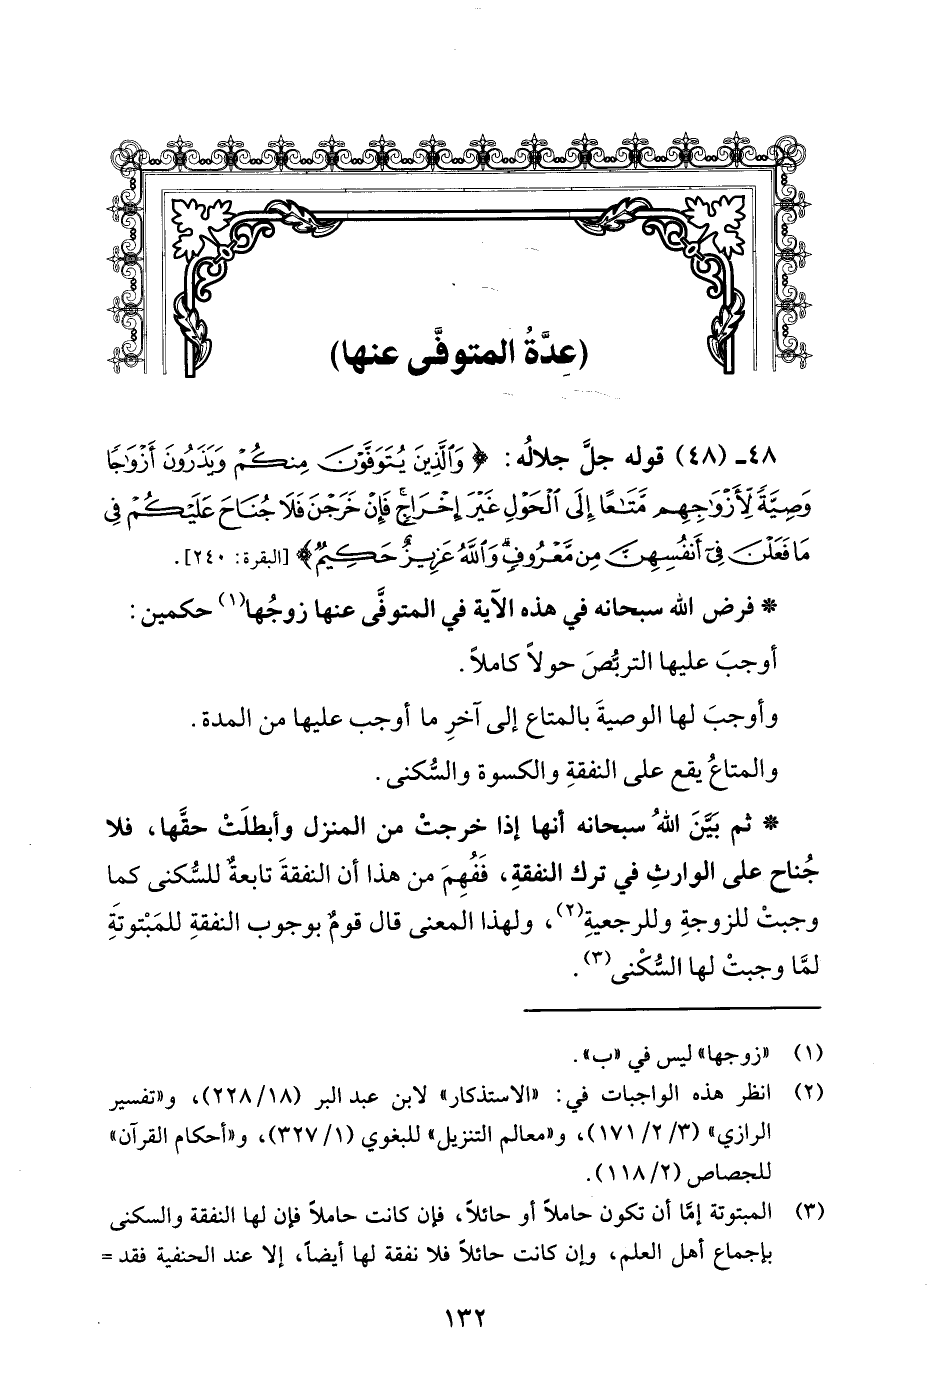 (عِدَّةُ المتوفَّى عنها)
٤٨ـ (٤٨) قوله جلَّ جلالُه: ﴿ وَٱلَّذِينَ يُتَوَفَّوْنَ مِنكُمْ وَيَذَرُونَ أَزْوَٰجًا
وَصِيَّةً لِّأَزْوَٰجِهِم مَّتَٰعًا إِلَى ٱلْحَوْلِ غَيْرَ إِخْرَاجٍ فَإِنْ خَرَجْنَ فَلَا جُنَاحَ عَلَيْكُمْ فِى
مَا فَعَلْنَ فِىٓ أَنفُسِهِنَّ مِن مَّعْرُوفٍ وَٱللَّهُ عَزِيزٌ حَكِيمٌ﴾ [البقرة: ٢٤٠].
* فرض الله سبحانه في هذه الآية في المتوفَّى عنها زوجُها(١) حكمين:
أوجبَ عليها التربُّصَ حولاً كاملاً.
وأوجبَ لها الوصيةَ بالمتاع إلى آخرِ ما أوجب عليها من المدة.
والمتاعُ يقع على النفقةِ والكسوة والسُّكنى.
* ثم بَيَّنَ اللهُ سبحانه أنها إذا خرجتْ من المنزل وأبطلَتْ حقَّها، فلا
جُناح على الوارثِ في ترك النفقةِ، فَفُهِمَ من هذا أن النفقةَ تابعةٌ للسُّكنى كما
وجبتْ للزوجةِ وللرجعيةِ(٢)، ولهذا المعنى قال قومٌ بوجوب النفقةِ للمَبْتوتةِ
لمَّا وجبتْ لها السُّكْنى(٣).
(١) «زوجها» ليس في «ب».
(٢) انظر هذه الواجبات في: «الاستذكار» لابن عبد البر (١٨/ ٢٢٨)، و«تفسير
الرازي» (٣/ ٢/ ١٧١)، و«معالم التنزيل» للبغوي (١/ ٣٢٧)، و«أحكام القرآن»
للجصاص (٢/ ١١٨).
(٣) المبتوتة إمَّا أن تكون حاملاً أو حائلاً، فإن كانت حاملاً فإن لها النفقة والسكنى
بإجماع أهل العلم، وإن كانت حائلاً فلا نفقة لها أيضاً، إلا عند الحنفية فقد =
١٣٢